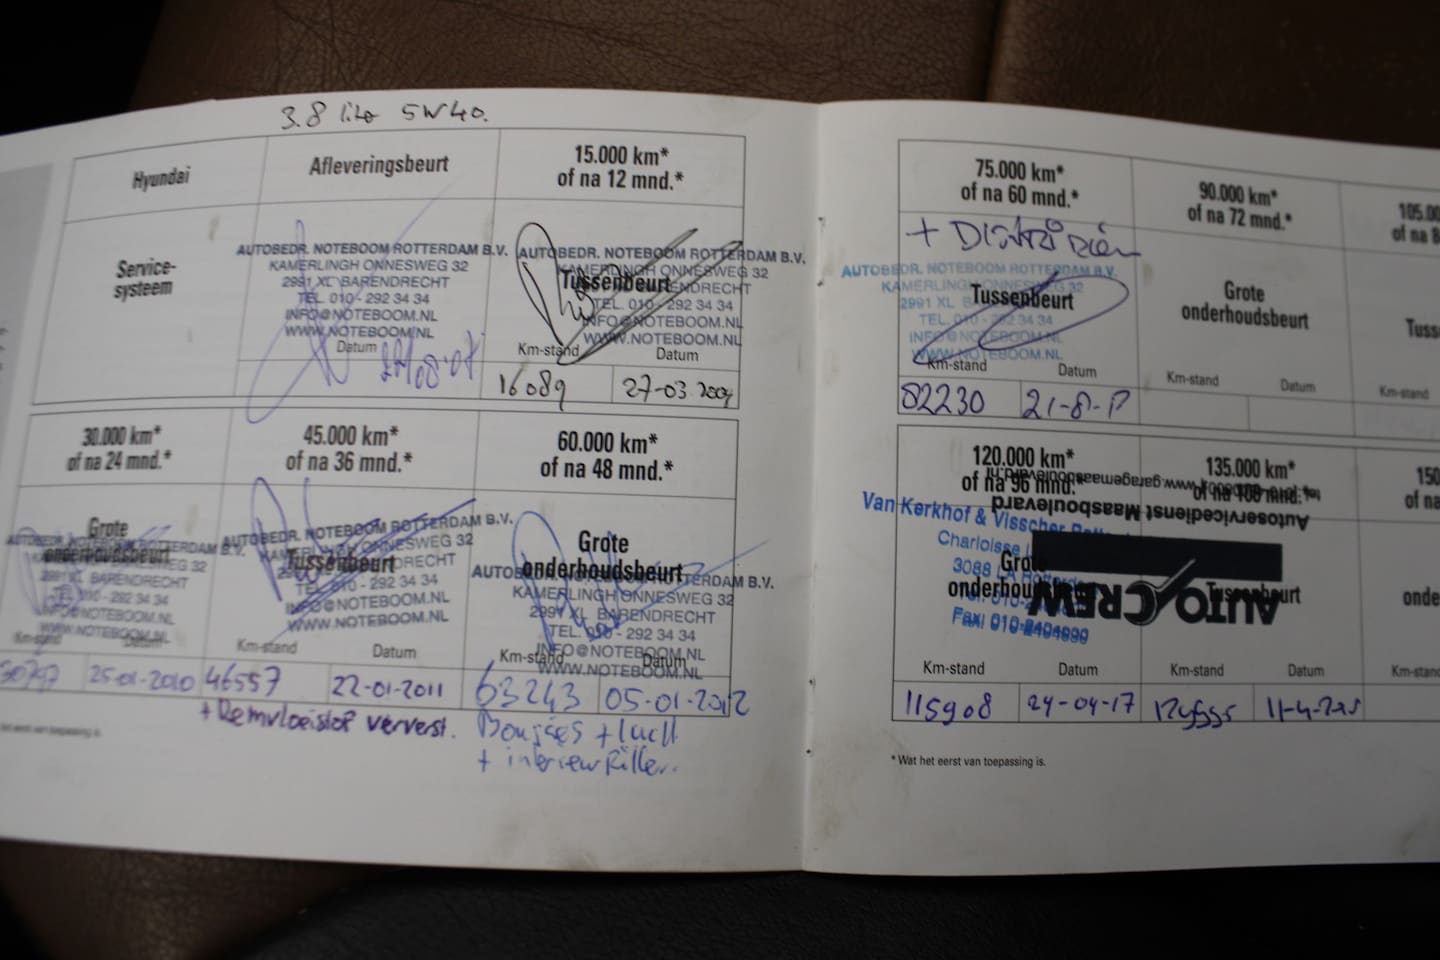 3.8 liter 5W40.
Hyundai
Afleveringsbeurt
15.000 km*
of na 12 mnd.*
Service-
systeem
AUTOBEDR. NOTEBOOM ROTTERDAM B.V.
KAMERLINGH ONNESWEG 32
2991 XL BARENDRECHT
TEL. 010 - 292 34 34
INFO@NOTEBOOM.NL
WWW.NOTEBOOM.NL
Datum
AUTOBEDR. NOTEBOOM ROTTERDAM B.V.
KAMERLINGH ONNESWEG 32
Tussenbeurt
BARENDRECHT
TEL. 010 - 292 34 34
INFO@NOTEBOOM.NL
WWW.NOTEBOOM.NL
Km-stand
Datum
16089
27-03-2009
30.000 km*
of na 24 mnd.*
45.000 km*
of na 36 mnd.*
60.000 km*
of na 48 mnd.*
Grote
onderhoudsbeurt
AUTOBEDR. NOTEBOOM ROTTERDAM B.V.
KAMERLINGH ONNESWEG 32
2991 XL BARENDRECHT
TEL. 010 - 292 34 34
INFO@NOTEBOOM.NL
WWW.NOTEBOOM.NL
Km-stand
Datum
30797
25-01-2010
AUTOBEDR. NOTEBOOM ROTTERDAM B.V.
KAMERLINGH ONNESWEG 32
Tussenbeurt
BARENDRECHT
TEL. 010 - 292 34 34
INFO@NOTEBOOM.NL
WWW.NOTEBOOM.NL
Km-stand
Datum
46557
22-01-2011
+ Remvloeistof ververst.
Grote
onderhoudsbeurt
AUTOBEDR. NOTEBOOM ROTTERDAM B.V.
KAMERLINGH ONNESWEG 32
2991 XL BARENDRECHT
TEL. 010 - 292 34 34
INFO@NOTEBOOM.NL
WWW.NOTEBOOM.NL
Km-stand
Datum
63243
05-01-2012
Bougies + lucht
+ interieur filter.
van toepassing is.
75.000 km*
of na 60 mnd.*
90.000 km*
of na 72 mnd.*
105.00
of na 8
+ Distri riem
AUTOBEDR. NOTEBOOM ROTTERDAM B.V.
KAMERLINGH ONNESWEG 32
2991 XL
Tussenbeurt
TEL. 010 - 292 34 34
INFO@NOTEBOOM.NL
WWW.NOTEBOOM.NL
Km-stand
Datum
82230
Grote
onderhoudsbeurt
Km-stand
Datum
Tuss
Km-stand
120.000 km*
of na 96 mnd.*
135.000 km*
of na 108 mnd.*
150
of na
Van Kerkhof & Visscher
Charloisse
3088 LA
Fax: 010-
Grote
onderhoudsbeurt
Km-stand
Datum
115908
24-04-17
www.garagemaasboulevard.nl
Autoservicedienst Maasboulevard
AUTO CREW
Tussenbeurt
Km-stand
Datum
onde
Km-stand
* Wat het eerst van toepassing is.